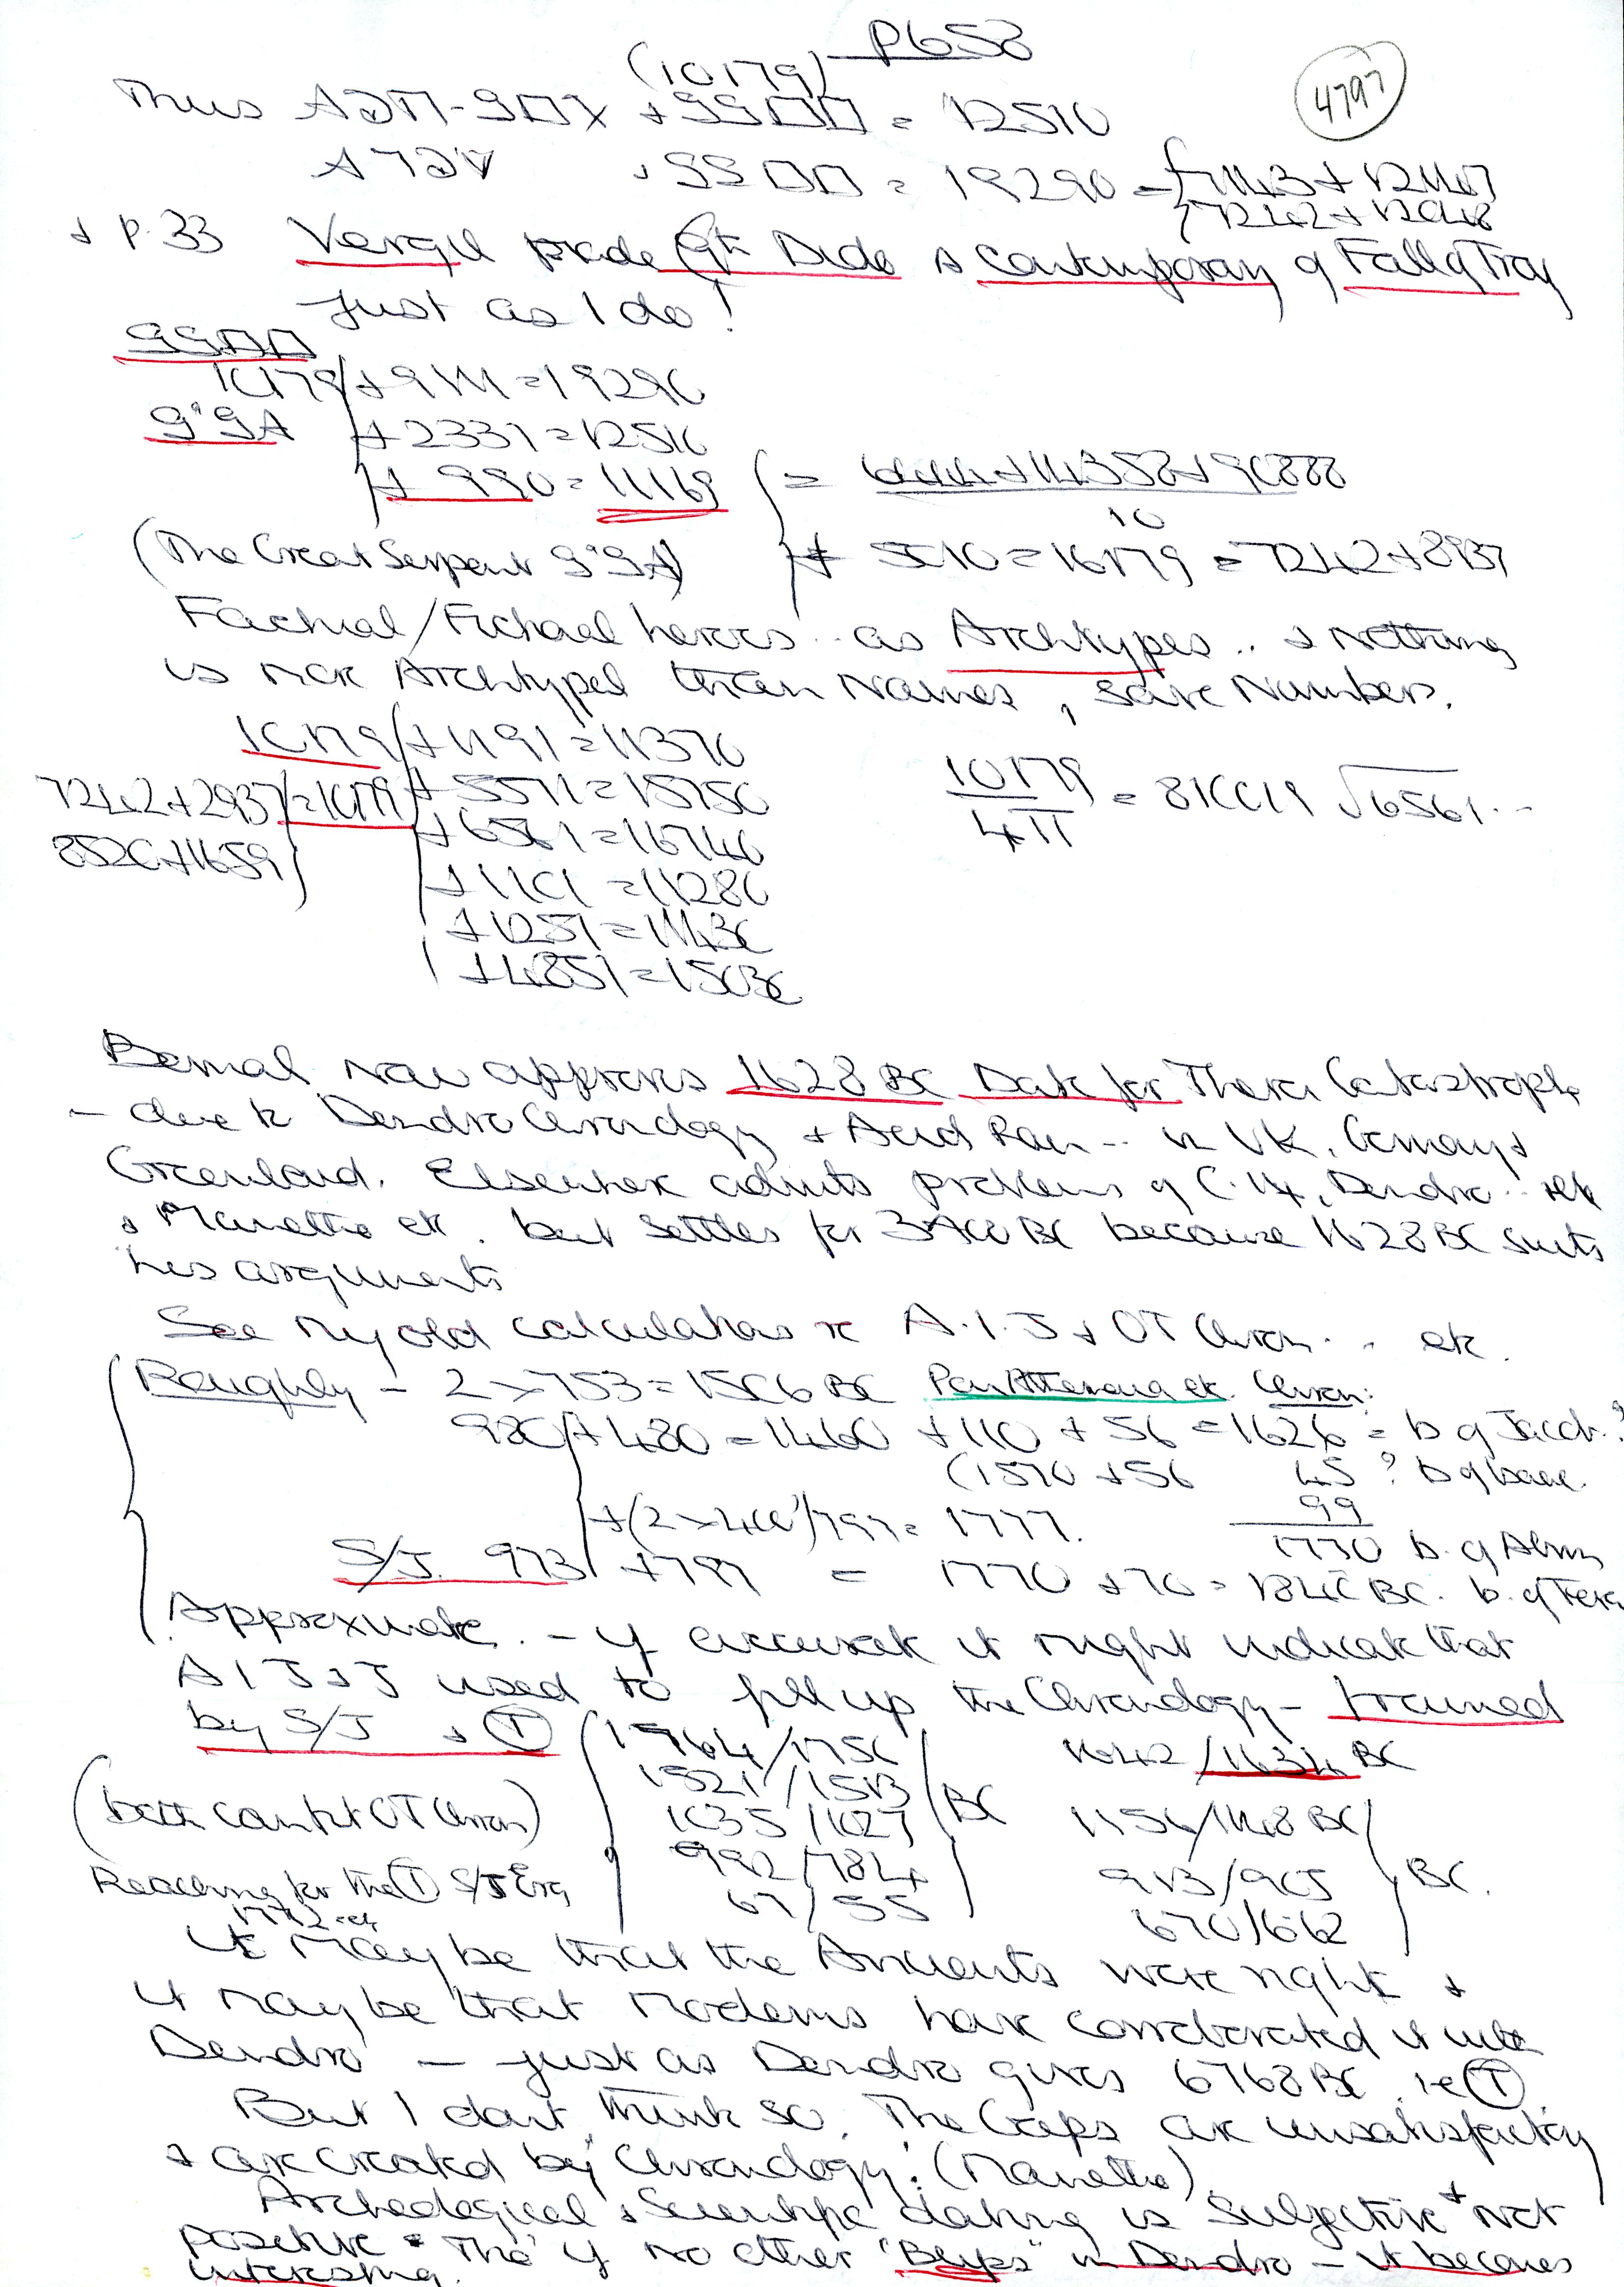 P658
4797
(10179)
Thus + = 12510
= 19290 =
+ P. 33 Vergil made Qk Dido a contemporary of Fall of Troy
just as I do!
10179 + 9111 = 19290
+ 2331 = 12510
+ 990 = 11169
(The Great Serpent
10
+ 5010 = 16179 = 7242 + 8937
Factual/Fictional heroes .. as Archtypes .. & Nothing
is more Archtypal than Names, save Numbers.
10179 + 1191 = 11370
7242 + 2937 = 10179 + 5571 = 15750
8520 + 1659
+ 6561 = 16740
+ 1101 = 11280
+ 1251 = 11430
+ 4851 = 15030
10179 / 4π = 810019 √6561 ..
Bernal now approves 1628 BC Date for Thera Catastrophe
– due to DendroChronology + Acid Rain .. in UK, Germany +
Greenland. Elsewhere admits problems of C.14, Dendro .. etc
& Manetho etc. but settles for BC because 1628 BC suits
his arguments
See my old calculations re A.I.J + OT Chron .. etc.
Roughly – 2 × 753 = 1506 BC PanAthenaia etc. Chron:
980 + 480 = 1460 + 110 + 56 = 1626 = b of Jacob?
(1570 + 56 45 ? b of Isaac.
99
1730 b. of Abram
+ (2 × 400)/797 = 1777.
S/J. 973 + 797 = 1770 + 70 = 1840 BC. b. of Tera
Approximate. – If accurate it might indicate that
A I J & J used to fill up the Chronology – framed
by S/J & T
1764/1756
1521/1513
1035/1027
992/784
67/55
BC
1642/1634 BC
1156/1148 BC
913/905
670/662
BC.
(both contr OT Chron)
Reaching for the T S/J Era
1772 etc
It may be that the Ancients were right &
it may be that Moderns have corroborated it with
Dendro – just as Dendro gives 6768 BC i-e T.
But I don't think so. The Gaps are unsatisfactory
& are created by Chronology! (Manetho)
Archeological & Scientific dating is subjective + not
positive. Tho' if no other "Blips" in Dendro – it becomes
interesting.